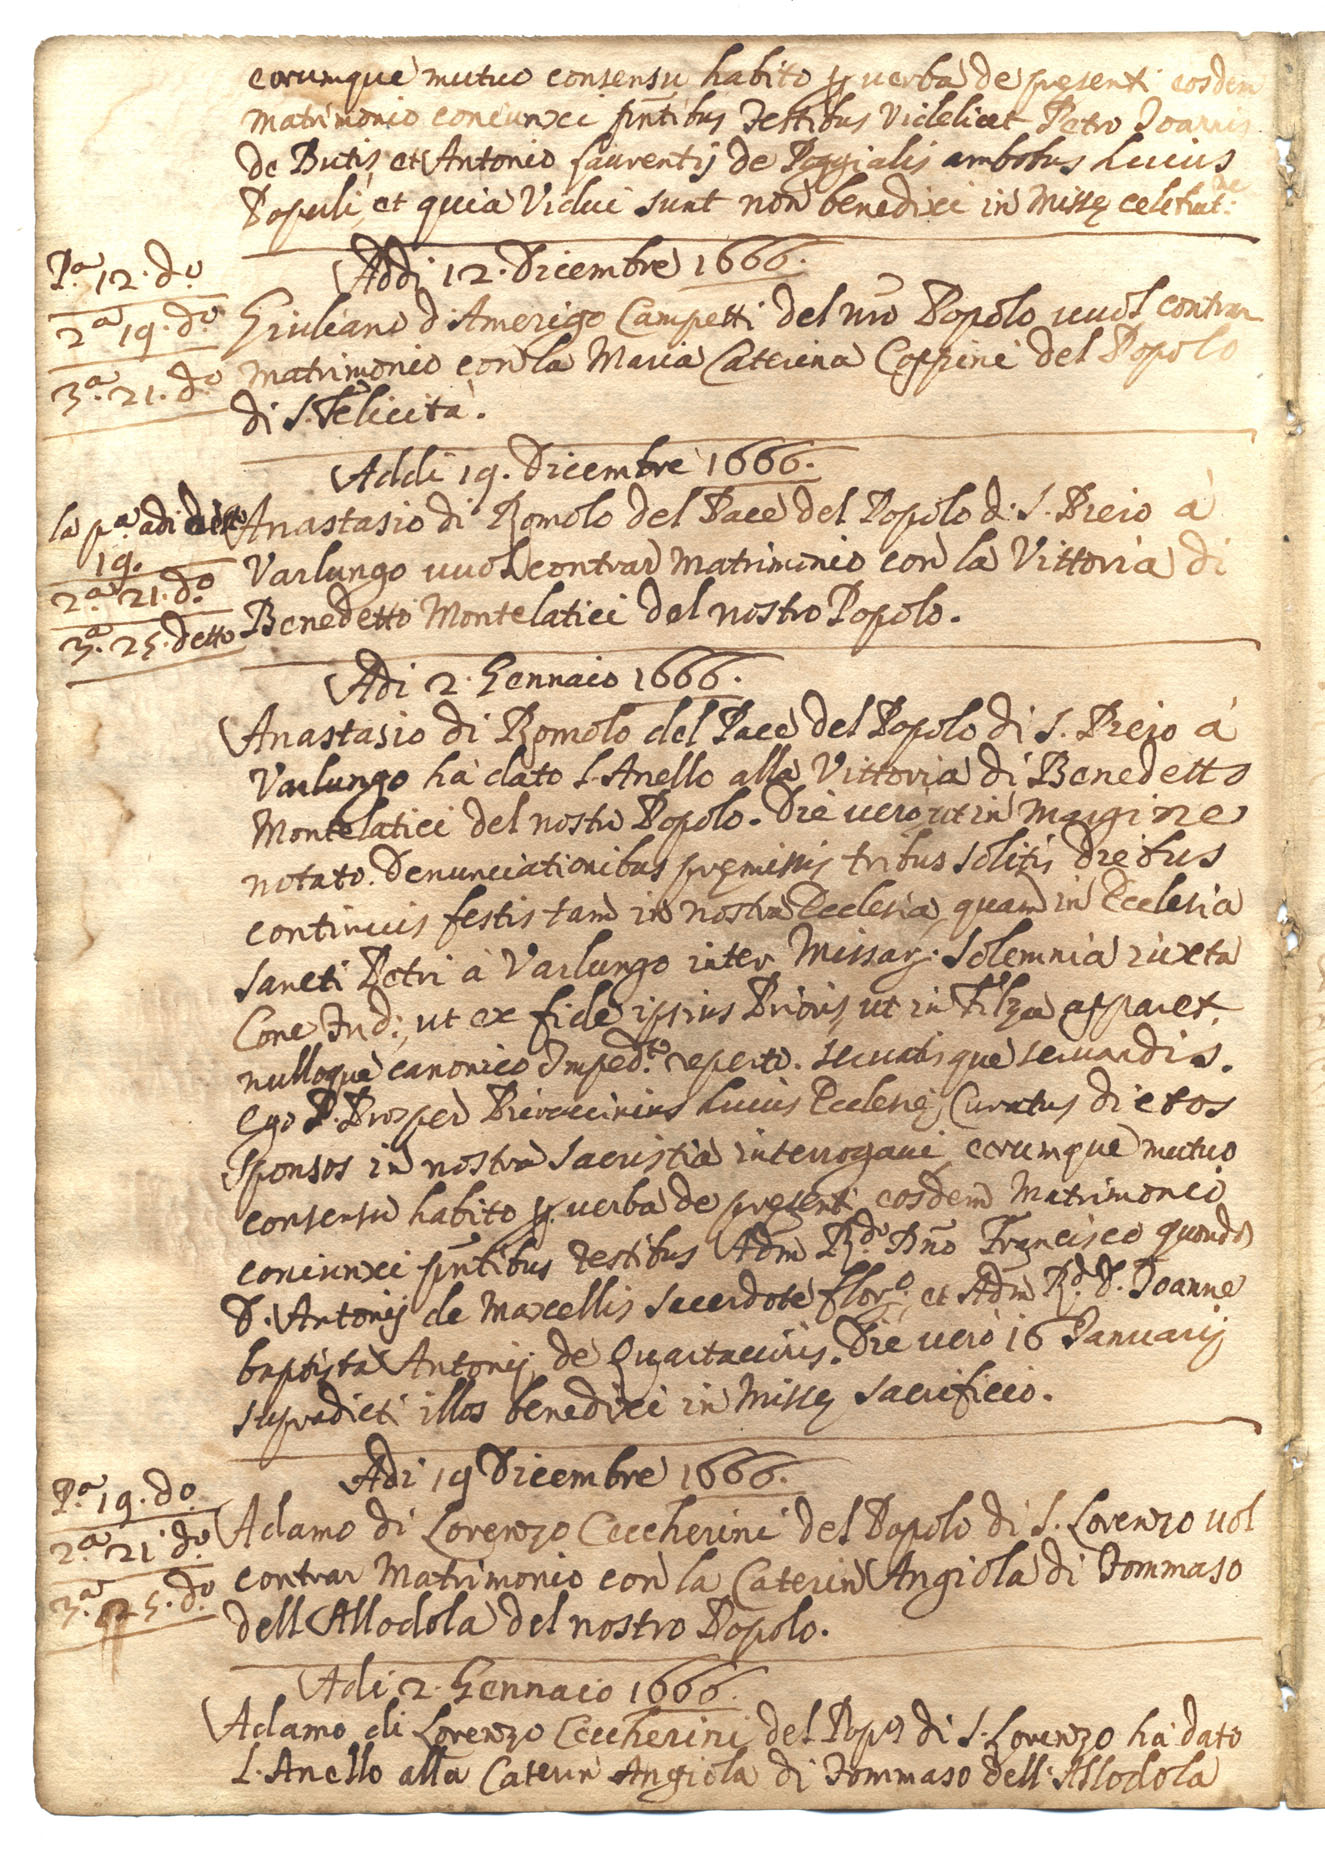 eorumque mutuo consensu habito p verba de presenti eosdem
matrimonio coniunxi pñtibus Testibus Videlicet Petro Ioannis
de Butis, et Antonio Laurentij de Poggialis ambobus huius
Populi et quia Vidui sunt non benedixi in Missę celebrat:ne
Addi 12. Dicembre 1666.
P.a 12. d.o
2.a 19. d.o
3.a 21. d.o
Giuliano d'Amerigo Campetti del nrõ Popolo vuol contrar
matrimonio con la Maria Caterina Coppini del Popolo
di S. Felicita.
Addi 19. Dicembre 1666.
la p.a adi detto
19.
2.a 21. d.o
3.a 25. detto
Anastasio di Romolo del Pace del Popolo di S. Piero à
Varlungo vuol contrar matrimonio con la Vittoria di
Benedetto Montelatici del nostro Popolo.
Adi 2. Gennaio 1666.
Anastasio di Romolo del Pace del Popolo di S. Piero à
Varlungo hà dato l'Anello alla Vittoria di Benedetto
Montelatici del nostro Popolo. Die vero ut in margine
notato. Denunciationibus pręmissis tribus solitis Diebus
continuis festis tam in nostra Ecclesia, quam in Ecclesia
Sancti Petri à Varlungo inter Missar: solemnia iuxta
Conc. Trid:, ut ex fide ipsius Prioris, ut in Filza apparet,
nulloque canonico Imped.to reperto. servatisque servandis.
ego P. Prosper huius Ecclesię Curatus dictos
sponsos in nostra Sacristia interrogavi eorumque mutuo
consensu habito p verba de pręsenti eosdem Matrimonio
coniunxi pñtibus Testibus Adm R.do Dño Francisco quondã
D. Antonij de Marcellis sacerdote Flor.o, et Adm R.d D. Ioanne
baptista Antonij de Quartaccijs. Die vero 16 Ianuarij
supradicti illos benedixi in Missę sacrificio.
Adi 19 Dicembre 1666.
P.a 19. d.o
2.a 21 d.o
3.a 25. d.o
Adamo di Lorenzo Ceccherini del Popolo di S. Lorenzo vol
contrar Matrimonio con la Caterin Angiola di Tommaso
dell'Allodola del nostro Popolo.
Adi 2. Gennaio 1666.
Adamo di Lorenzo Ceccherini del Pop.o di S. Lorenzo hà dato
l'Anello alla Caterin Angiola di Tommaso dell'Allodola